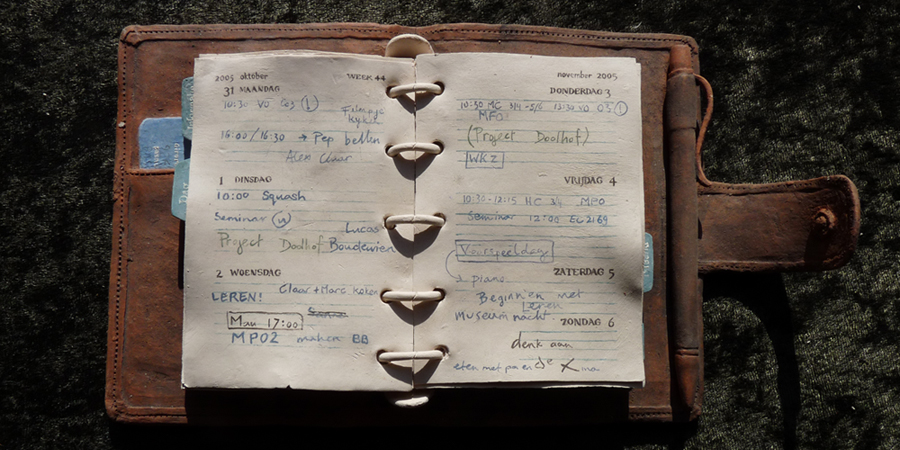 2005 oktober WEEK 44
31 MAANDAG
10:30 VO
Filmpje
kijken
16:00/16:30 → Pep bellen
Alex Claar
1 DINSDAG
10:00 Squash
Seminar
Lucas
Project Doolhof Boudewien
2 WOENSDAG
Claar + Marc koken
LEREN!
Man 17:00
MPO2 maken BB
november 2005
DONDERDAG 3
10:30 MC 3/4 - 5/6 13:30 VO
(Project Doolhof)
WKZ
VRIJDAG 4
10:30-12:15 HC 3/4 MPO
Seminar 12:00 EL2169
Voorspeeldag
ZATERDAG 5
piano
Beginnen met
Leren
Museumnacht
ZONDAG 6
denk aan
eten met pa en